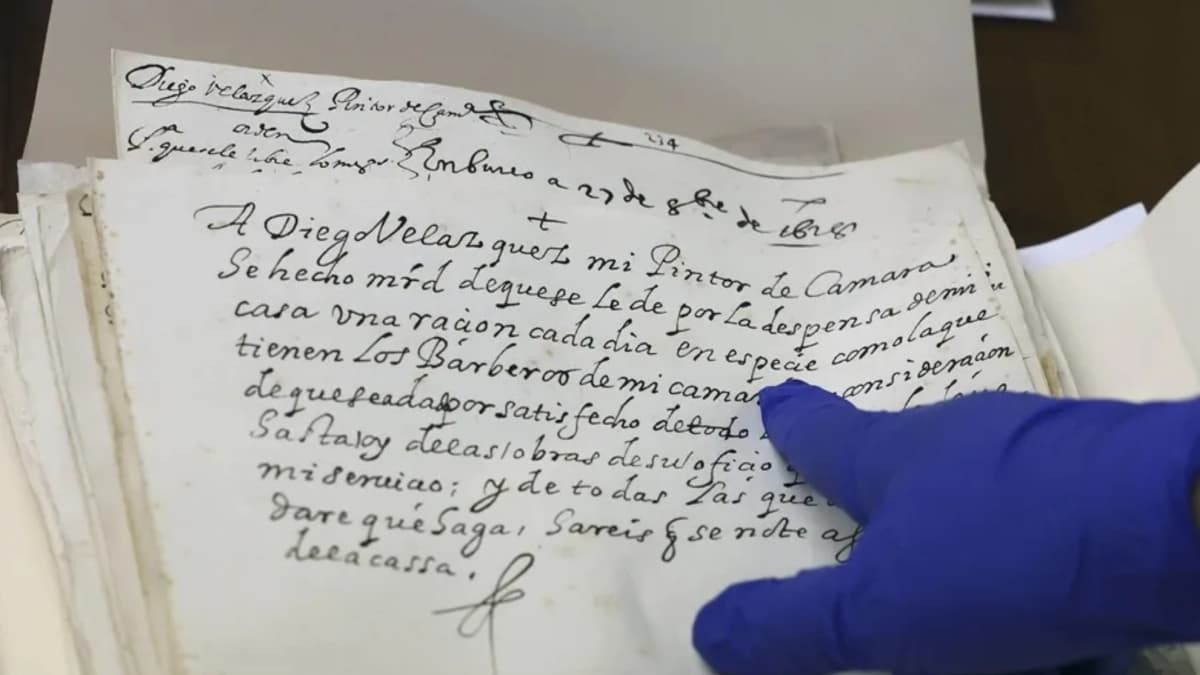 Diego Velazquez Pintor de Cam.ª
234
orden
P.ª que se le libre
En bureo a 27 de 8bre de 1628
A Diego Velazquez mi Pintor de Camara
Se hecho mrd de que se le de por la despensa de mi
casa vna racion cada dia en especie como la que
tienen los Barberos de mi camar consideracion
de que se a dado por satisfecho de todo
hasta oy de las obras de su oficio q
mi seruicio; y de todas las que
dare que haga, hareis q se note as
de la cassa.